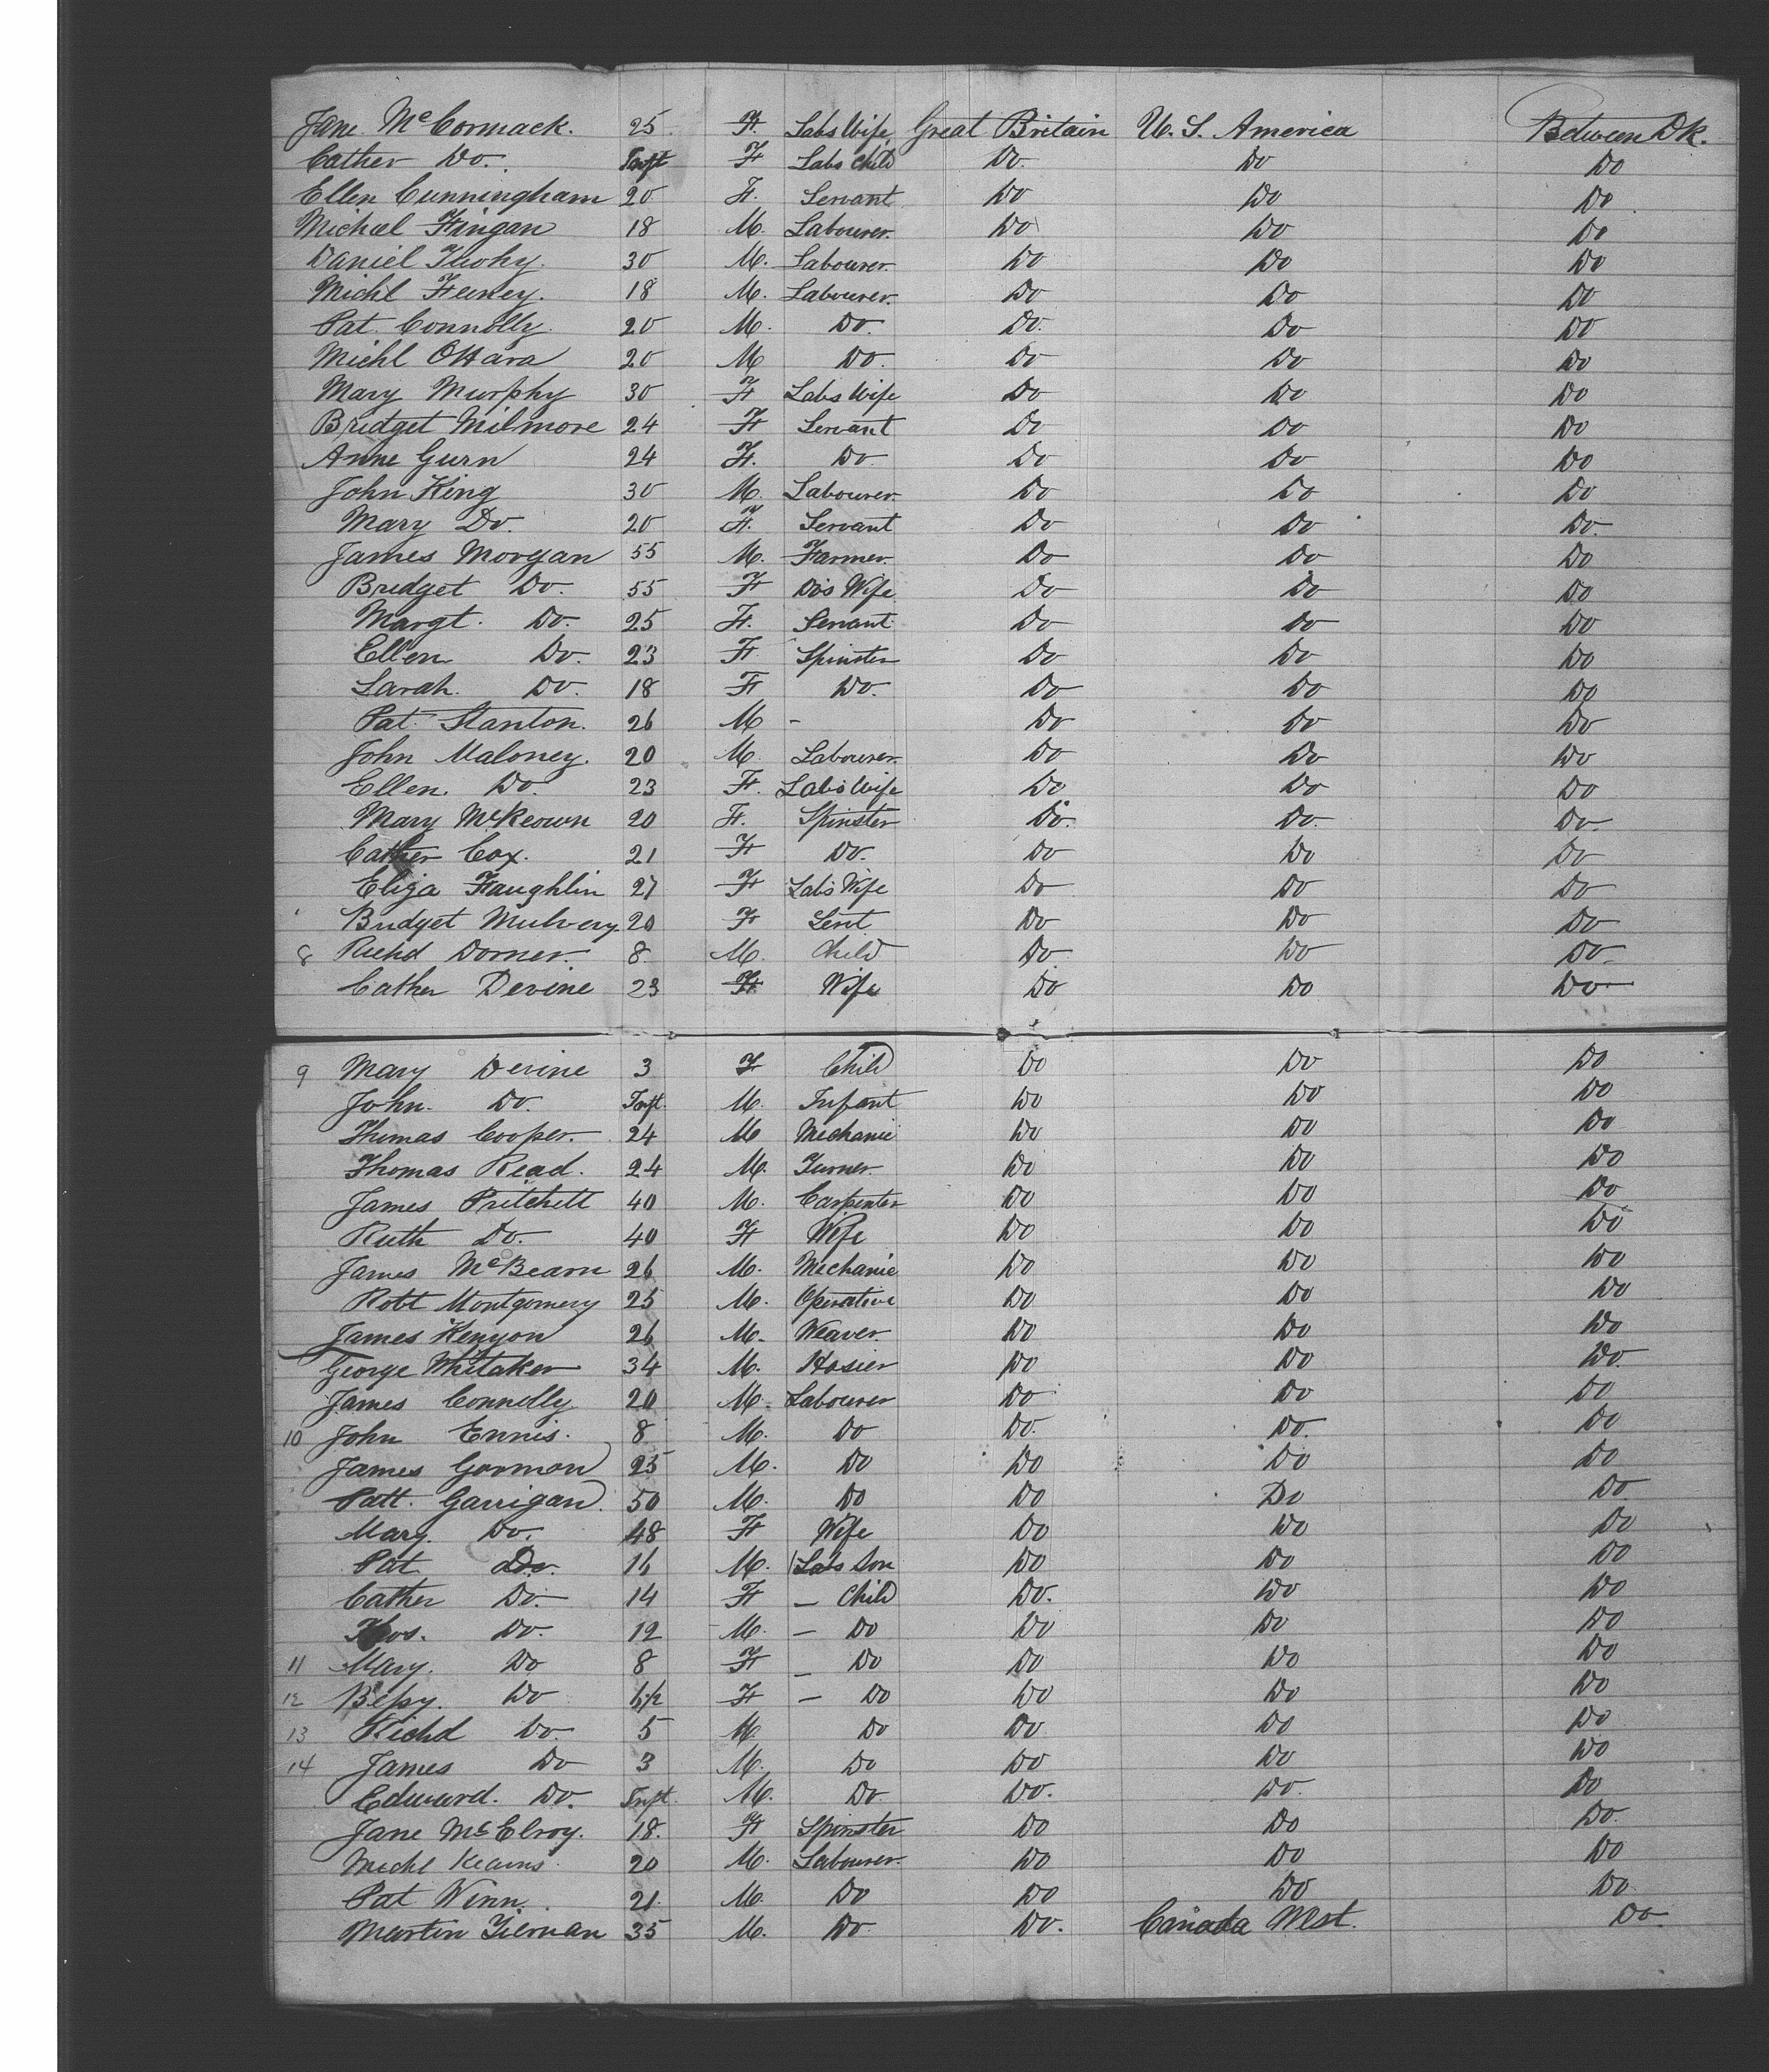 Jane McCormack. 25 F. Labs Wife Great Britain U. S. America Between Dk.
Cather Do. Inft F Labs Child Do. Do Do
Ellen Cunningham 20 F. Servant Do Do Do
Michael Fingan 18 M. Labourer. Do Do Do
Daniel Tuohy. 30 M. Labourer. Do Do Do
Michl Feeney. 18 M. Labourer. Do Do Do
Pat. Connolly. 20 M. Do. Do. Do Do
Michl OHara 20 M Do. Do Do Do
Mary Murphy 30 F Labs Wife Do Do Do
Bridget Milmore 24 F Servant Do Do Do
Anne Gurn 24 F. Do Do Do Do
John King 30 M. Labourer Do Do Do
Mary Do. 20 F. Servant Do Do Do.
James Morgan 55 M. Farmer. Do Do Do
Bridget Do. 55 F Do's Wife Do Do Do
Margt. Do. 25 F. Servant Do Do Do
Ellen Do. 23 F. Spinster Do Do Do
Sarah. Do. 18 F Do. Do Do Do
Pat. Stanton. 26 M - Do Do Do
John Maloney. 20 M. Labourer. Do Do Do
Ellen. Do. 23 F. Lab's Wife Do Do Do
Mary McKeown 20 F. Spinster Do. Do. Do.
Cather Cox. 21 F Do. Do Do Do
Eliza Faughlin 27 F Lab's Wife Do Do Do
Bridget Mulvery 20 F Sert Do Do Do
8 Richd Dorner. 8. M. Child Do Do Do.
Cather Devine 23 F Wife Do Do Do
9 Mary Devine 3 F Child Do Do Do
John. Do. Inft. M. Infant Do Do Do
Thomas Cooper. 24 M Mechanic Do Do Do
Thomas Read. 24 M. Turner. Do Do Do
James Pritchett 40 M. Carpenter Do Do Do
Ruth Do. 40 F Wife Do Do Do
James McBearn 26 M. Mechanic Do Do Do
Robt Montgomery 25 M. Operative Do Do Do
James Kenyon 26 M. Weaver. Do Do Do
George Whitaker 34 M. Hosier Do Do Do.
James Connolly 20 M. Labourer Do Do Do
10 John Ennis. 8 M. Do Do. Do. Do
James Gormon 25 M. Do Do Do Do
Patt. Garrigan. 50 M. Do Do Do Do
Mary. Do. 48 F Wife Do Do Do
Pat Do. 16 M. Labs Son Do Do Do
Cather Do. 14 F - Child Do. Do Do
Thos. Do. 12 M. - Do Do Do Do
11 Mary. Do 8 F - Do Do Do Do
12 Bessy. Do F - Do Do Do Do
13 Richd Do. 5 M. Do Do Do Do
14 James Do 3 M. Do Do Do Do
Edward. Do. Inft. M. Do Do. Do. Do
Jane McElroy. 18. F Spinster Do Do Do.
Michl Kearns. 20 M. Labourer. Do Do Do
Pat Winn. 21. M. Do Do Do Do.
Martin Tiernan 35 M. Do. Do. Canada West. Do.